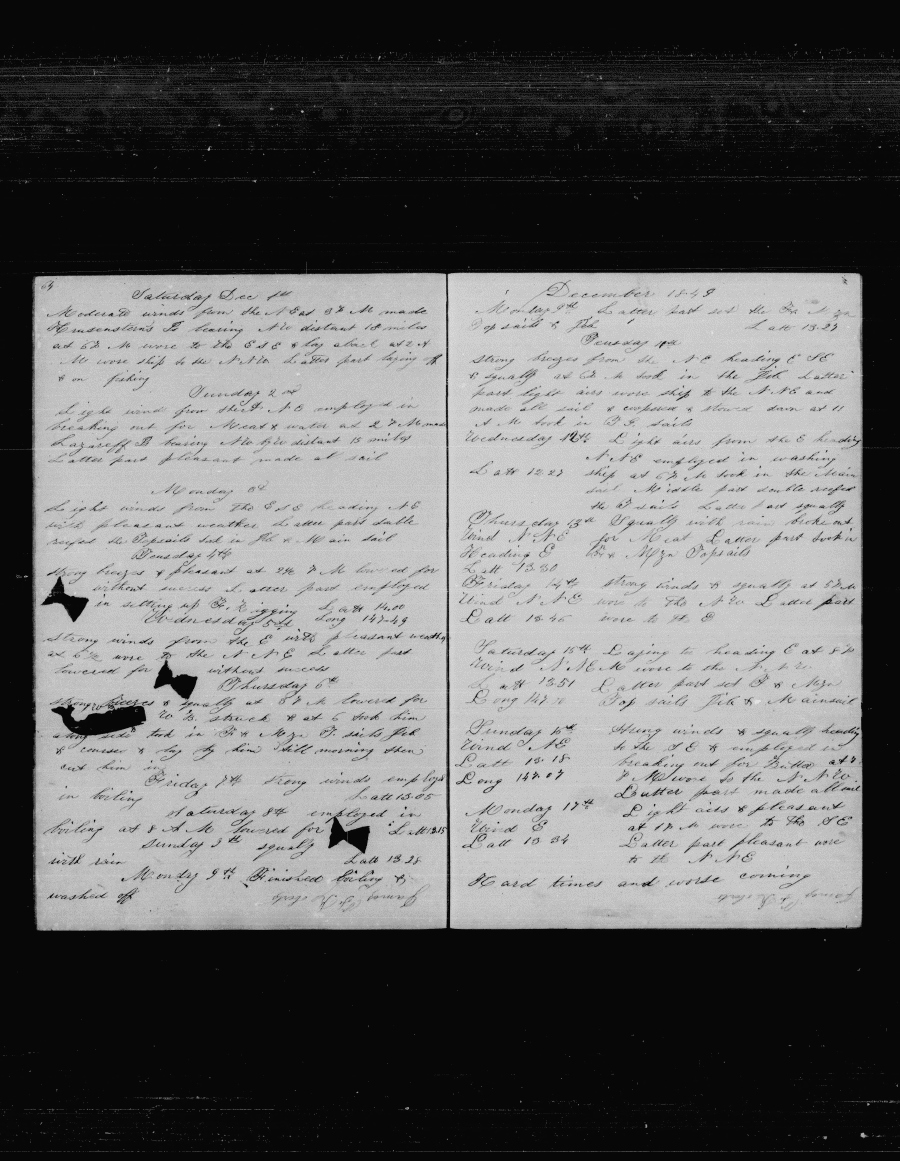 64
Saturday Dec 1st
Moderate winds from the NE at 3 P M made
Krusensterns Is bearing NW distant 18 miles
at 6 P M wore to the E S E & lay aback at 2 A
M wore ship to the N N W Latter part laying off
& on fishing
Sunday 2nd
Light wind from the N E employed in
breaking out for Meat & water at 2 P M made
Lazareff Is bearing NW by W distant 15 miles
Latter part pleasant made all sail
Monday 3d
Light winds from the E S E heading NE
with pleasant weather Latter part dubble
reefed the Topsails set in Jib & Main sail
Tuesday 4th
strong breezes & pleasant at 2 P M lowered for
without success Latter part employed
in setting up F Rigging Latt 14.00
Wednesday 5th Long 147-49
strong winds from the E with pleasant weather
at 6 P M wore to the N N E Latter part
lowered for without success
Thursday 6th
strong breezes & squally at 3 P M lowered for
W B struck & at 6 took him
along side took in F & Mzn T sails Jib
& courses & lay by him till morning then
cut him in
Friday 7th strong winds employed
in boiling Latt 13.05
Saturday 8th employed in
boiling at 8 A M lowered for Latt 13.15
Sunday 9th squally
with rain Latt 13-28
Monday 9th Finished boiling &
washed off
December 1849
Monday 9th Latter part set the Fa & Mzn
Topsails & Jib Latt 13-27
Tuesday
strong breezes from the N E heading E SE
& squally at 6 P M took in the Jib Latter
part light airs wore ship to the N N E and
made all sail & coopered & stowed down at 11
A M took in T G sails
Wednesday 12th Light airs from the E heading
N N E employed in washing
Latt 12-27 ship at 6 P M took in the Main
sail Middle part double reefed
the T sails Latter part squally
Thursday 13th Squally with rain broke out
Wind N N E for Meat Latter part took in
Heading E Fa & Mzn Topsails
Latt 13 30
Friday 14th strong winds & squally at 5 P M
Wind N N E wore to the N W Latter part
Latt 13-46 wore to the E
Saturday 15th Laying to heading E at 8 P
Wind N N E M wore to the N. N W.
Latt 13 51 Latter part set F & Mzn
Long 147 Top sails Jib & Mainsail
Sunday 16th Strong winds & squally heading
Wind NE to the S E & employed in
Latt 13-18 breaking out for
Long 147-07 P M wore to the N N W
Latter part made all sail
Monday 17th Light airs & pleasant
Wind E at 1 P M wore to the S E
Latt 13 34 Latter part pleasant wore
to the N N E
Hard times and worse coming